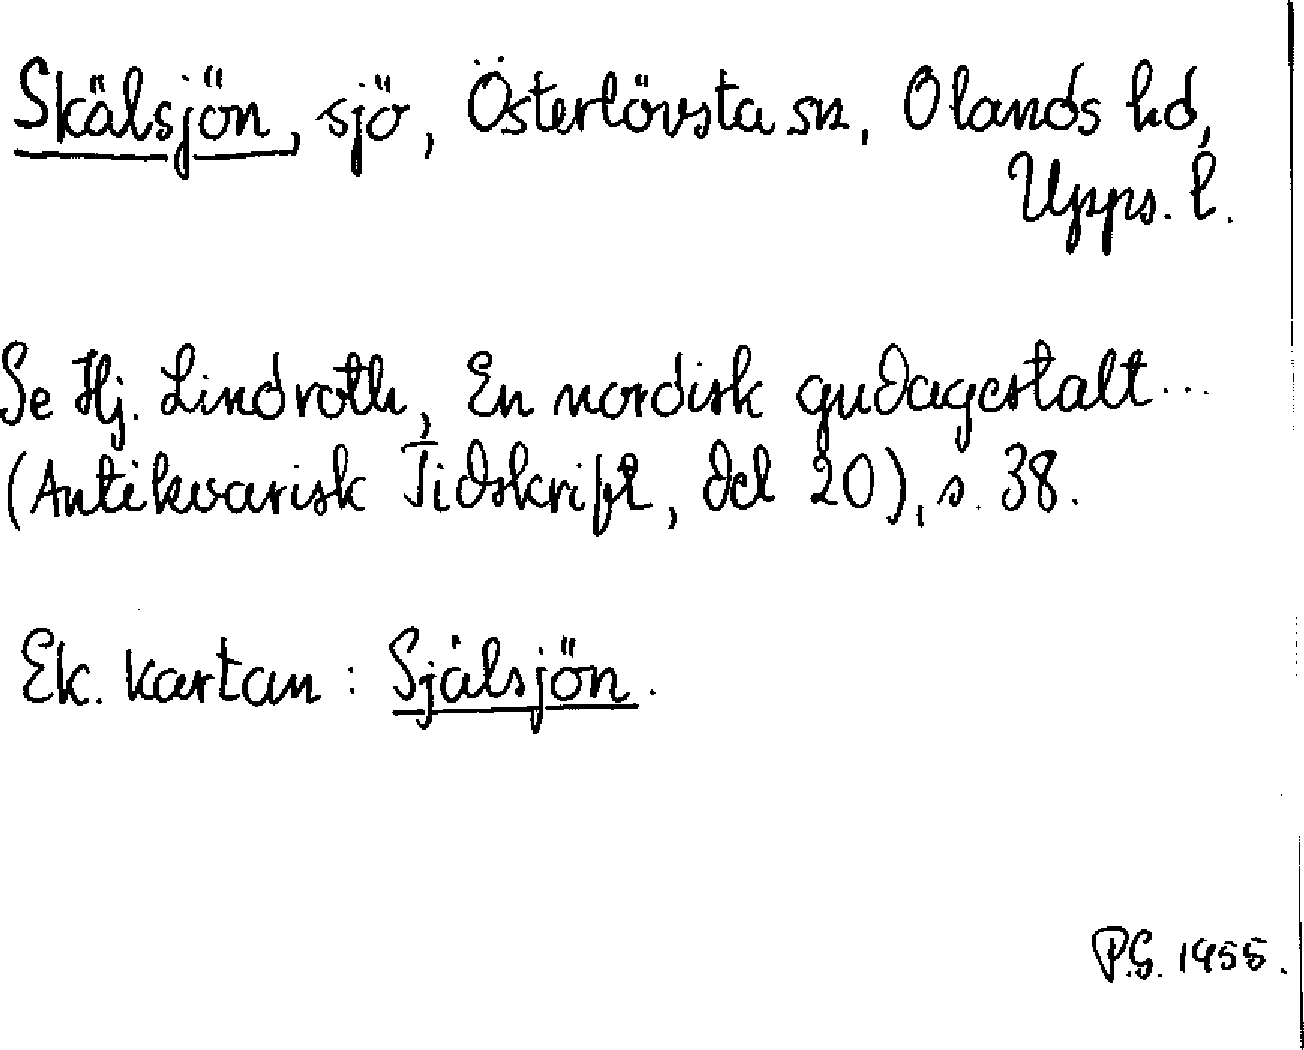 Skälsjön, sjö, Österlövsta sn, Olands hd,
Upps. l.
Se Hj. Lindroth, En nordisk gudagestalt...
(Antikvarisk Tidskrift, del 20), s. 38.
Ek. kartan: Själsjön.
P.G. 1955.